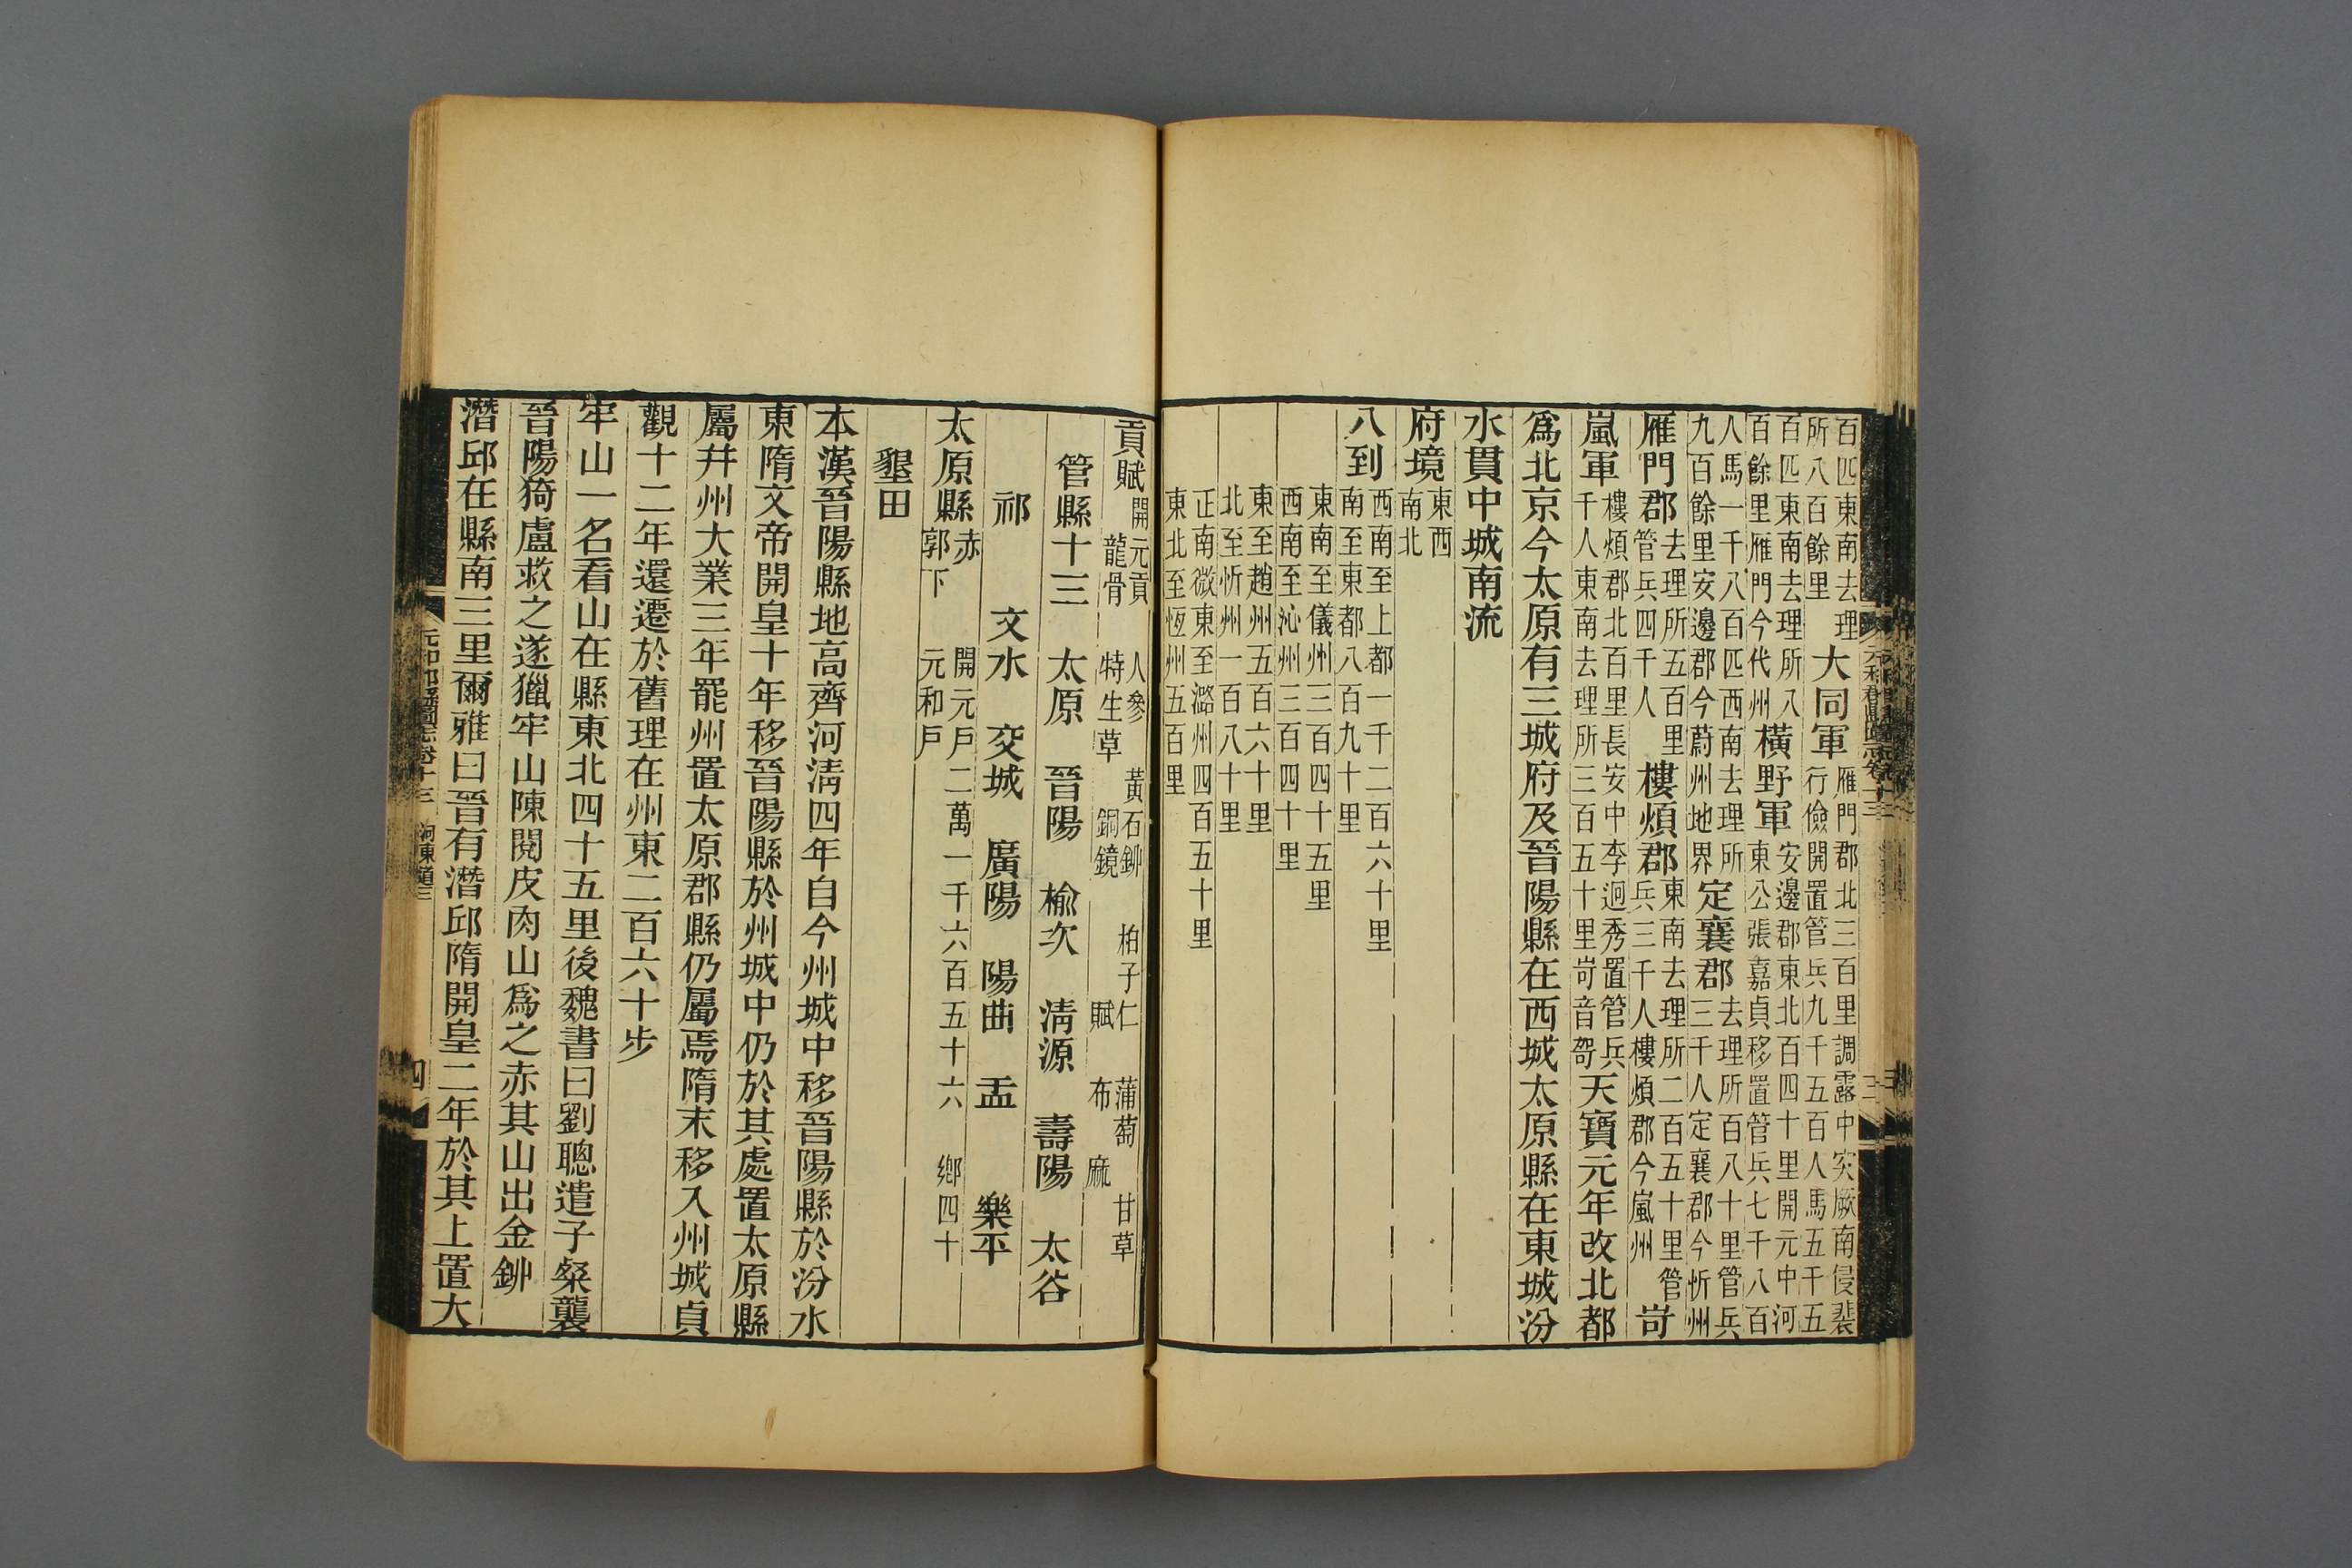 百匹東南去理
所八百餘里
大同軍
雁門郡北三百里調露中突厥南侵裴
行儉開置管兵九千五百人馬五千五
百匹東南去理所八
百餘里雁門今代州
橫野軍
安邊郡東北百四十里開元中河
東公張嘉貞移置管兵七千八百
人馬一千八百匹西南去理所
九百餘里安邊郡今蔚州地界
定襄郡
去理所百八十里管兵
三千人定襄郡今忻州
雁門郡
去理所五百里
管兵四千人
樓煩郡
東南去理所二百五十里管
兵三千人樓煩郡今嵐州
岢
嵐軍
樓煩郡北百里長安中李迥秀置管兵
千人東南去理所三百五十里岢音哿
天寶元年改北都
爲北京今太原有三城府及晉陽縣在西城太原縣在東城汾
水貫中城南流
府境
東西
南北
八到
西南至上都一千二百六十里
南至東都八百九十里
東南至儀州三百四十五里
西南至沁州三百四十里
東至趙州五百六十里
北至忻州一百八十里
正南微東至潞州四百五十里
東北至恆州五百里
貢賦
開元貢 人參 黃石鉚 柏子仁 蒲萄 甘草
龍骨 特生草 銅鏡 賦 布 麻
管縣十三 太原 晉陽 榆次 清源 壽陽 太谷
祁 文水 交城 廣陽 陽曲 盂 樂平
太原縣
赤
郭下
開元戶二萬一千六百五十六 鄉四十
元和戶
墾田
本漢晉陽縣地高齊河清四年自今州城中移晉陽縣於汾水
東隋文帝開皇十年移晉陽縣於州城中仍於其處置太原縣
屬并州大業三年罷州置太原郡縣仍屬焉隋末移入州城貞
觀十二年還遷於舊理在州東二百六十步
牢山一名看山在縣東北四十五里後魏書曰劉聰遣子粲襲
晉陽猗盧救之遂獵牢山陳閱皮肉山爲之赤其山出金鉚
潛邱在縣南三里爾雅曰晉有潛邱隋開皇二年於其上置大
元和郡縣圖志卷十三 河東道三
四